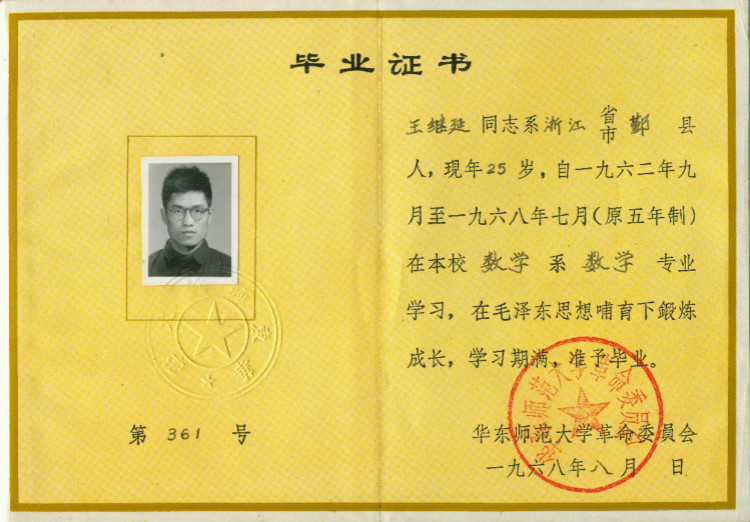 毕业证书
王继延同志系浙江省市鄞县
人，现年25岁，自一九六二年九
月至一九六八年七月(原五年制)
在本校数学系数学专业
学习，在毛泽东思想哺育下鍛炼
成长，学习期满，准予毕业。
华东师范大学革命委員会
一九六八年八月 日
华东师范大学革命委員会
第361号